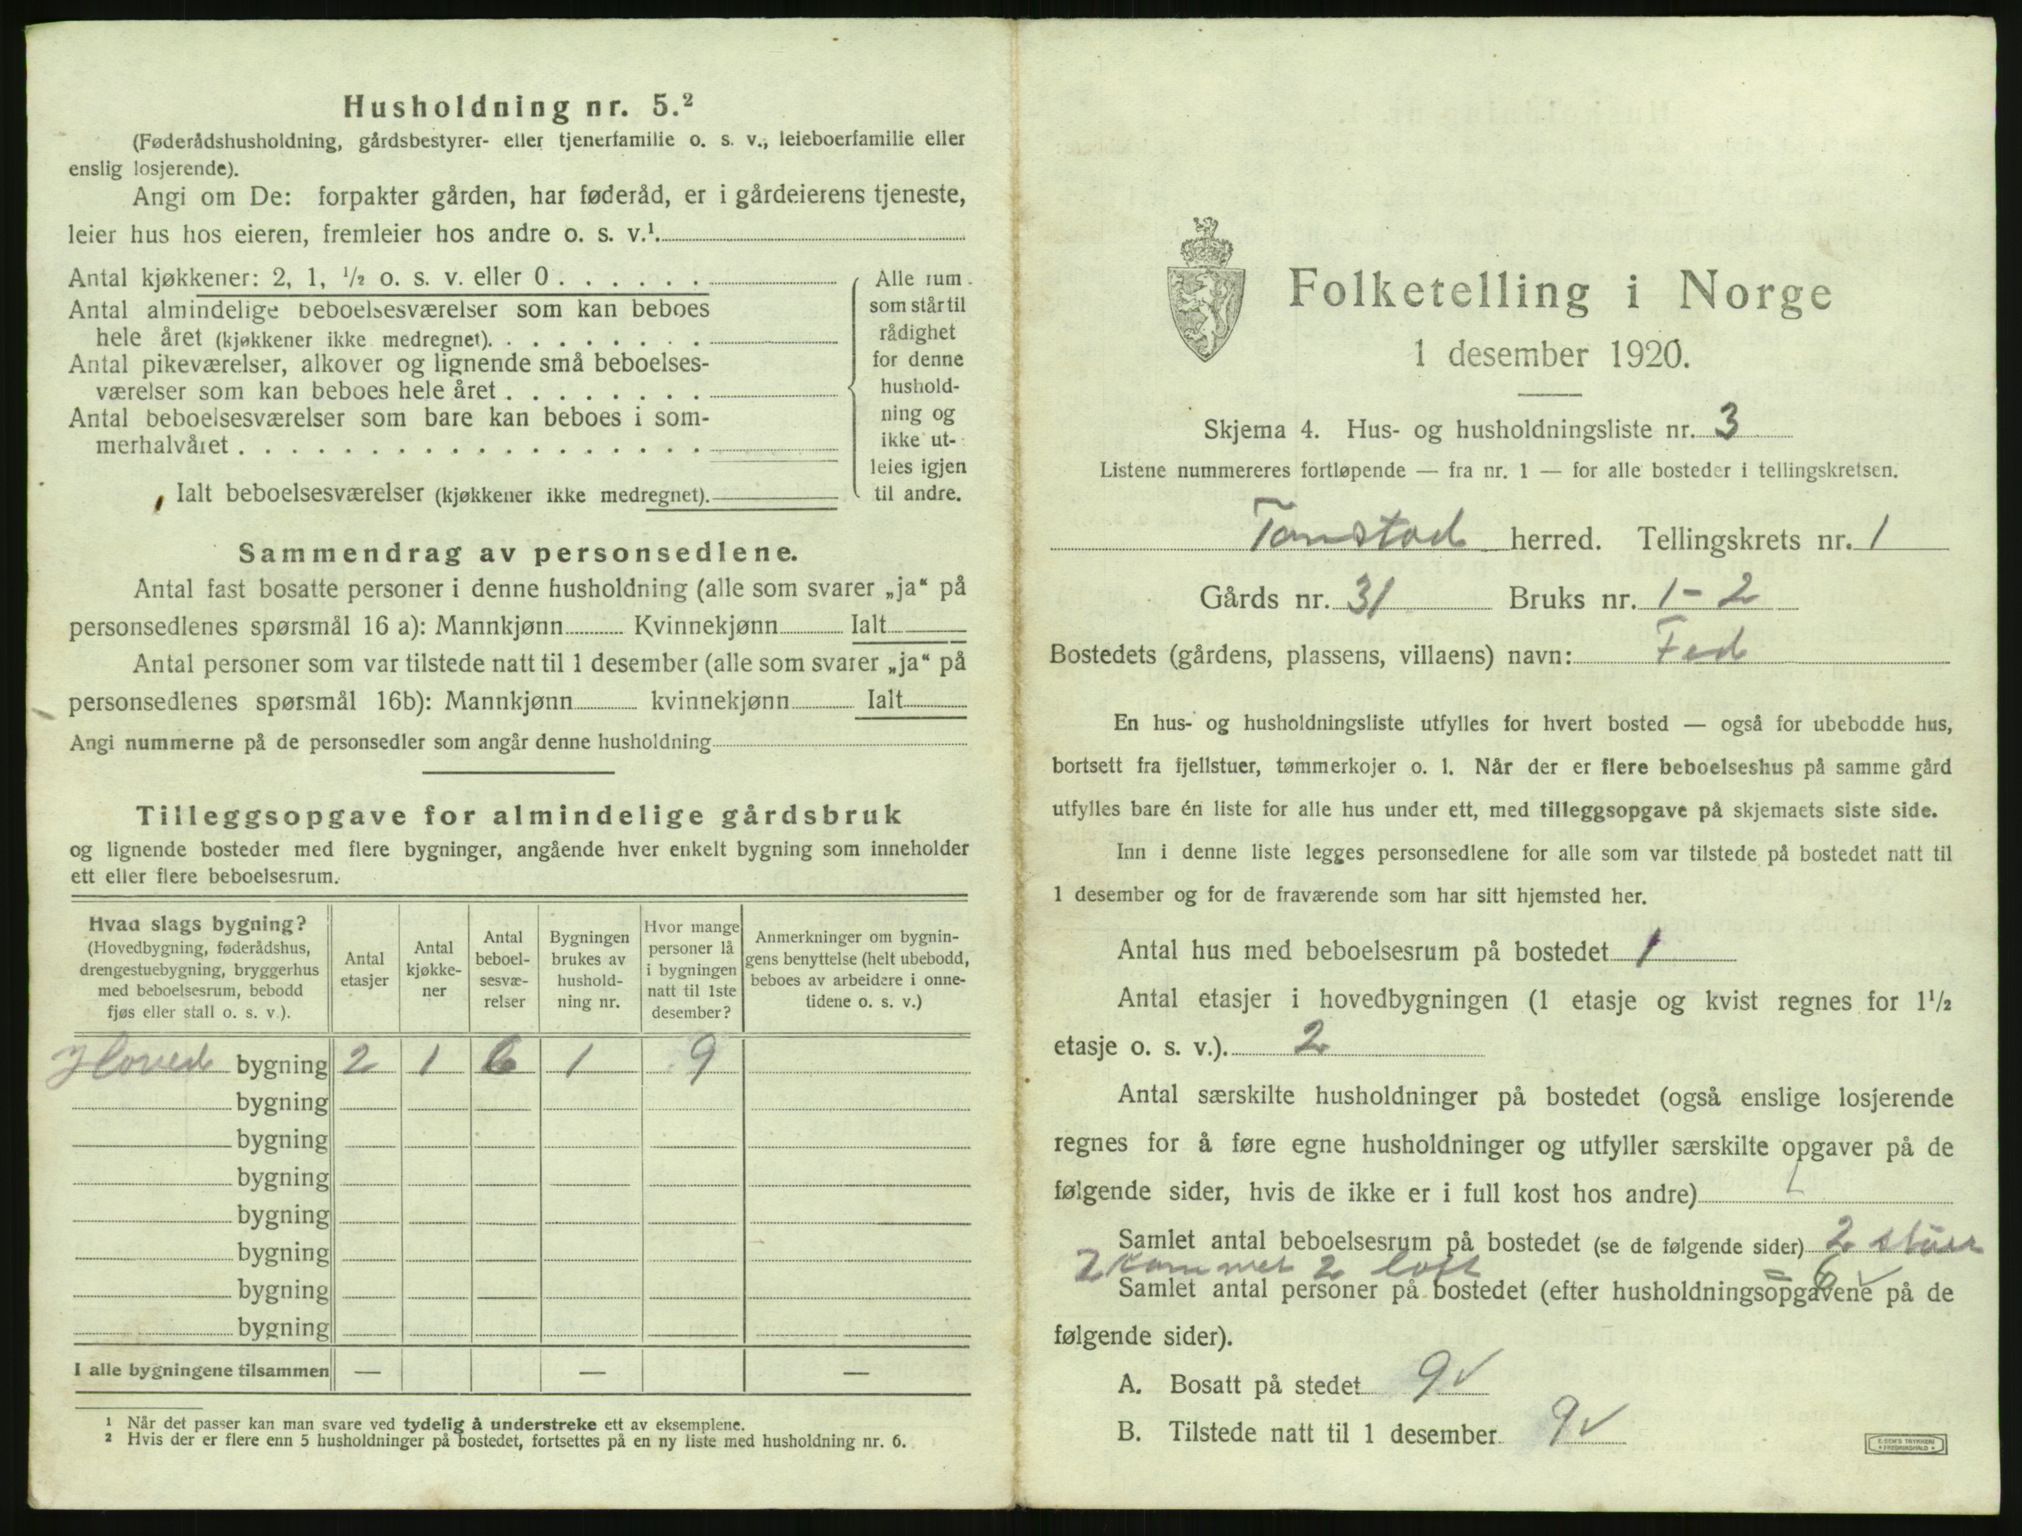 Husholdning nr. 5.²
(Føderådshusholdning, gårdsbestyrer- eller tjenerfamilie o. s. v., leieboerfamilie eller
enslig losjerende).
Angi om De: forpakter gården, har føderåd, er i gårdeierens tjeneste,
leier hus hos eieren, fremleier hos andre o. s. v.¹.
Antal kjøkkener: 2, 1, ½ o. s. v. eller 0 . . . . . .
Antal almindelige beboelsesværelser som kan beboes
hele året (kjøkkener ikke medregnet). . . . . . . . .
Antal pikeværelser, alkover og lignende små beboelses-
værelser som kan beboes hele året . . . . . . . .
Antal beboelsesværelser som bare kan beboes i som-
merhalvåret . . . . . . . . . . . . . . . . . .
Ialt beboelsesværelser (kjøkkener ikke medregnet).
Alle rum
som står til
rådighet
for denne
hushold-
ning og
ikke ut-
leies igjen
til andre.
Sammendrag av personsedlene.
Antal fast bosatte personer i denne husholdning (alle som svarer „ja“ på
personsedlenes spørsmål 16 a): Mannkjønn Kvinnekjønn Ialt
Antal personer som var tilstede natt til 1 desember (alle som svarer „ja“ på
personsedlenes spørsmål 16b): Mannkjønn kvinnekjønn Ialt
Angi nummerne på de personsedler som angår denne husholdning
Tilleggsopgave for almindelige gårdsbruk
og lignende bosteder med flere bygninger, angående hver enkelt bygning som inneholder
ett eller flere beboelsesrum.
Hvad slags bygning?
(Hovedbygning, føderådshus,
drengestuebygning, bryggerhus
med beboelsesrum, bebodd
fjøs eller stall o. s. v.).
Antal
etasjer
Antal
kjøkke-
ner
Antal
beboel-
sesvæ-
relser
Bygningen
brukes av
hushold-
ning nr.
Hvor mange
personer lå
i bygningen
natt til 1ste
desember?
Anmerkninger om bygnin-
gens benyttelse (helt ubebodd,
beboes av arbeidere i onne-
tidene o. s. v.)
Hoved bygning 2 1 6 1 9
bygning
bygning
bygning
bygning
bygning
bygning
bygning
I alle bygningene tilsammen — — —
¹ Når det passer kan man svare ved tydelig å understreke ett av eksemplene.
² Hvis der er flere enn 5 husholdninger på bostedet, fortsettes på en ny liste med husholdning nr. 6.
Folketelling i Norge
1 desember 1920.
Skjema 4. Hus- og husholdningsliste nr. 3
Listene nummereres fortløpende — fra nr. 1 — for alle bosteder i tellingskretsen.
Tonstad herred. Tellingskrets nr. 1
Gårds nr. 31 Bruks nr. 1-2
Bostedets (gårdens, plassens, villaens) navn: Fed
En hus- og husholdningsliste utfylles for hvert bosted — også for ubebodde hus,
bortsett fra fjellstuer, tømmerkojer o. l. Når der er flere beboelseshus på samme gård
utfylles bare én liste for alle hus under ett, med tilleggsopgave på skjemaets siste side.
Inn i denne liste legges personsedlene for alle som var tilstede på bostedet natt til
1 desember og for de fraværende som har sitt hjemsted her.
Antal hus med beboelsesrum på bostedet 1
Antal etasjer i hovedbygningen (1 etasje og kvist regnes for 1½
etasje o. s. v.). 2
Antal særskilte husholdninger på bostedet (også enslige losjerende
regnes for å føre egne husholdninger og utfyller særskilte opgaver på de
følgende sider, hvis de ikke er i full kost hos andre) 1
Samlet antal beboelsesrum på bostedet (se de følgende sider) 2 stuer
2 kammer 2 loft = 6 ✓
Samlet antal personer på bostedet (efter husholdningsopgavene på de
følgende sider).
A. Bosatt på stedet 9 ✓
B. Tilstede natt til 1 desember 9 ✓
E. SEM'S TRYKKERI
FREDRIKSHALD